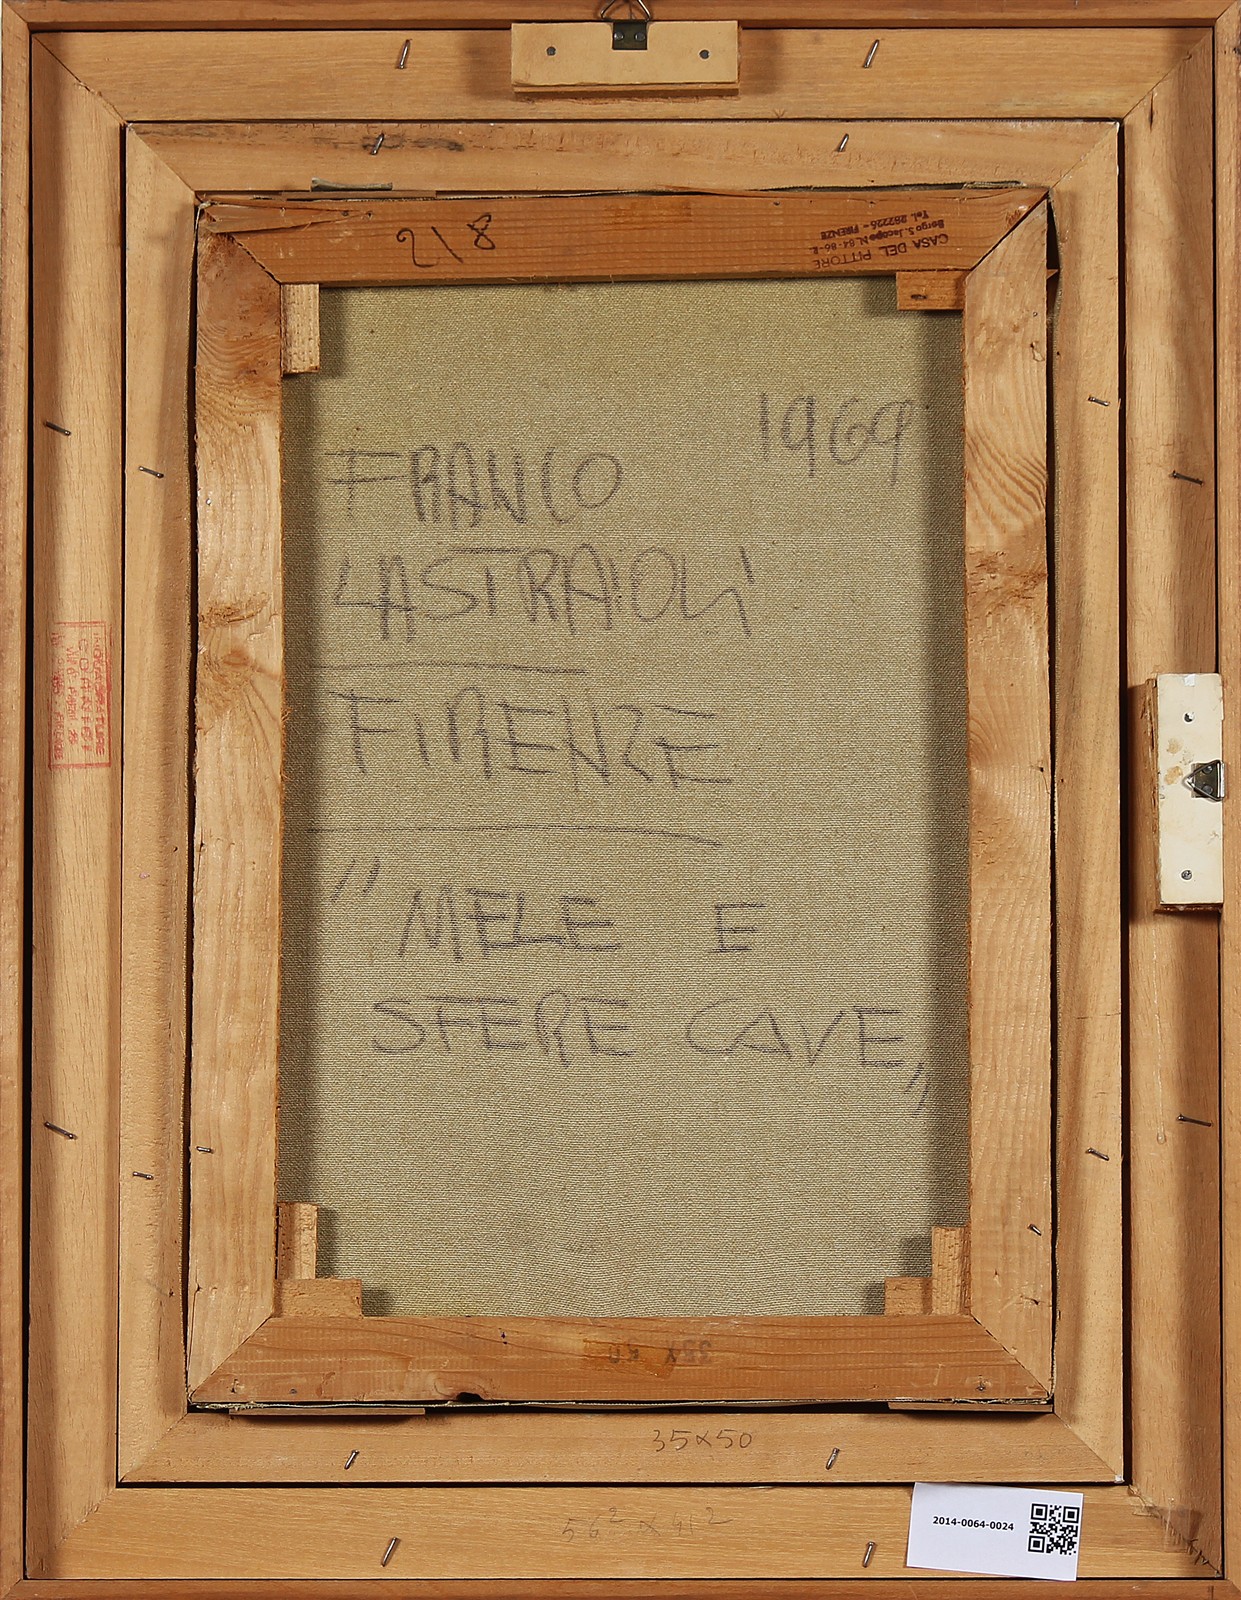 218
CASA DEL PITTORE
Borgo S. Jacopo N. 84-86-R.
Tel. 282226 - FIRENZE
1969
FRANCO
LASTRAIOLI
FIRENZE
"MELE E
SFERE CAVE"
35 X 50
35x50
56² x 41²
2014-0064-0024